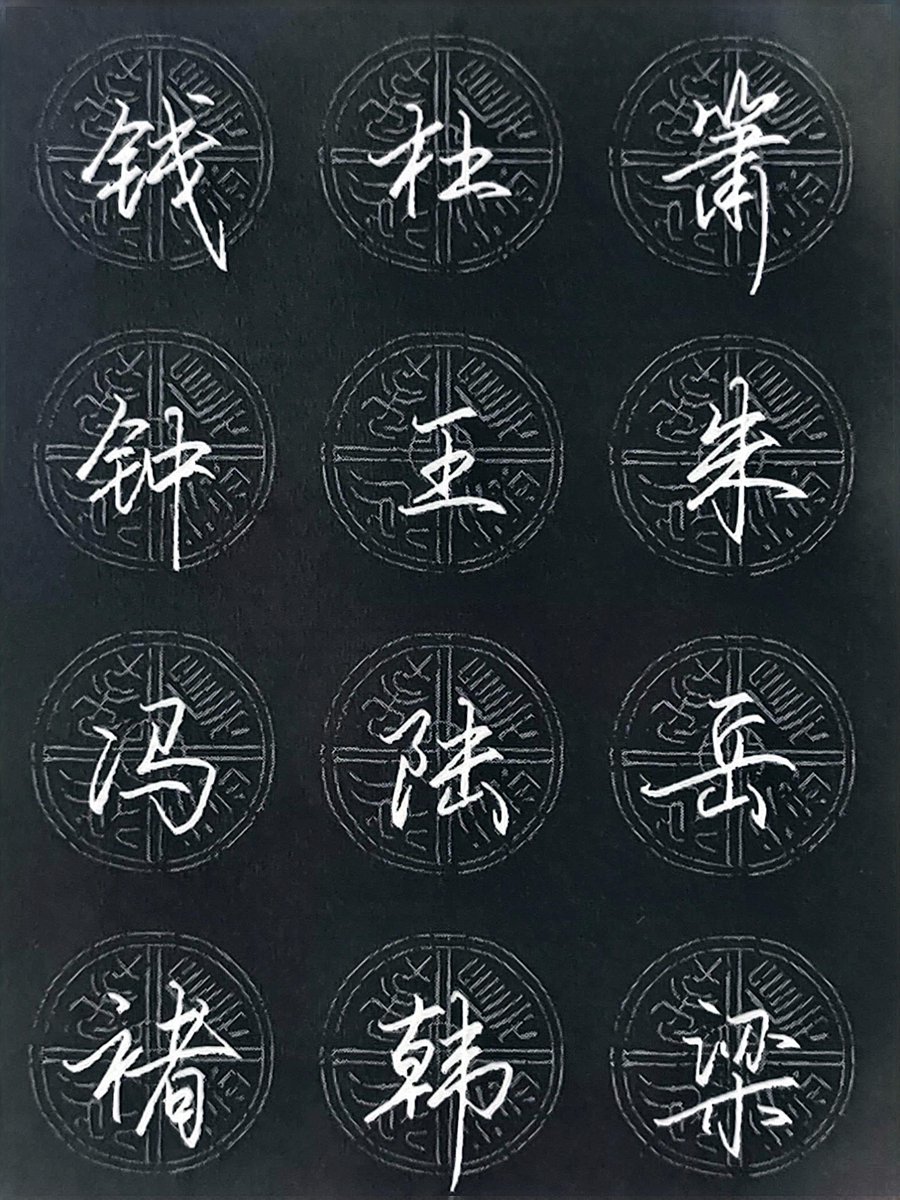 钱 杜 箫
钟 王 朱
冯 陆 岳
褚 韩 梁